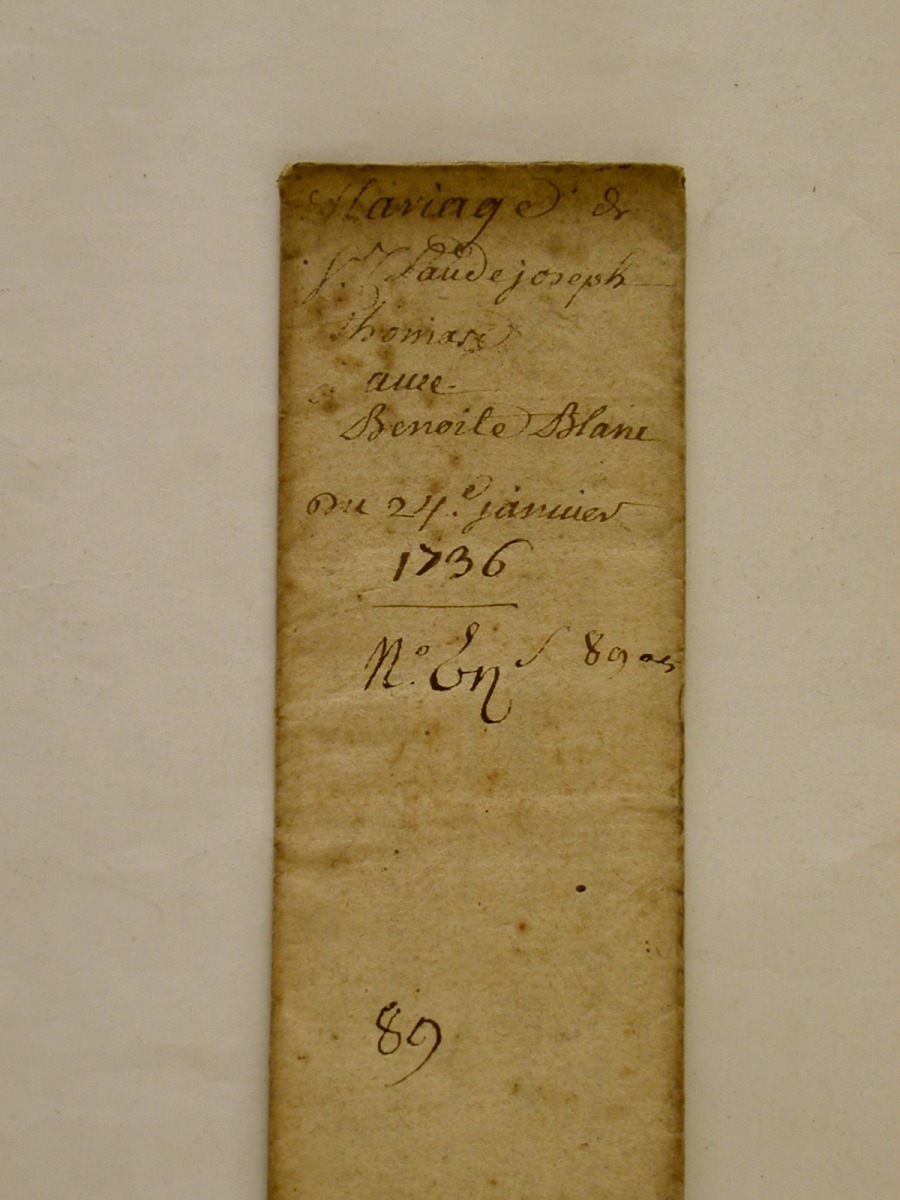 Mariage de
Sr. Claude joseph
Thomasé
avec
Benoite Blanc
du 24e. janvier
1736
No. 89
89